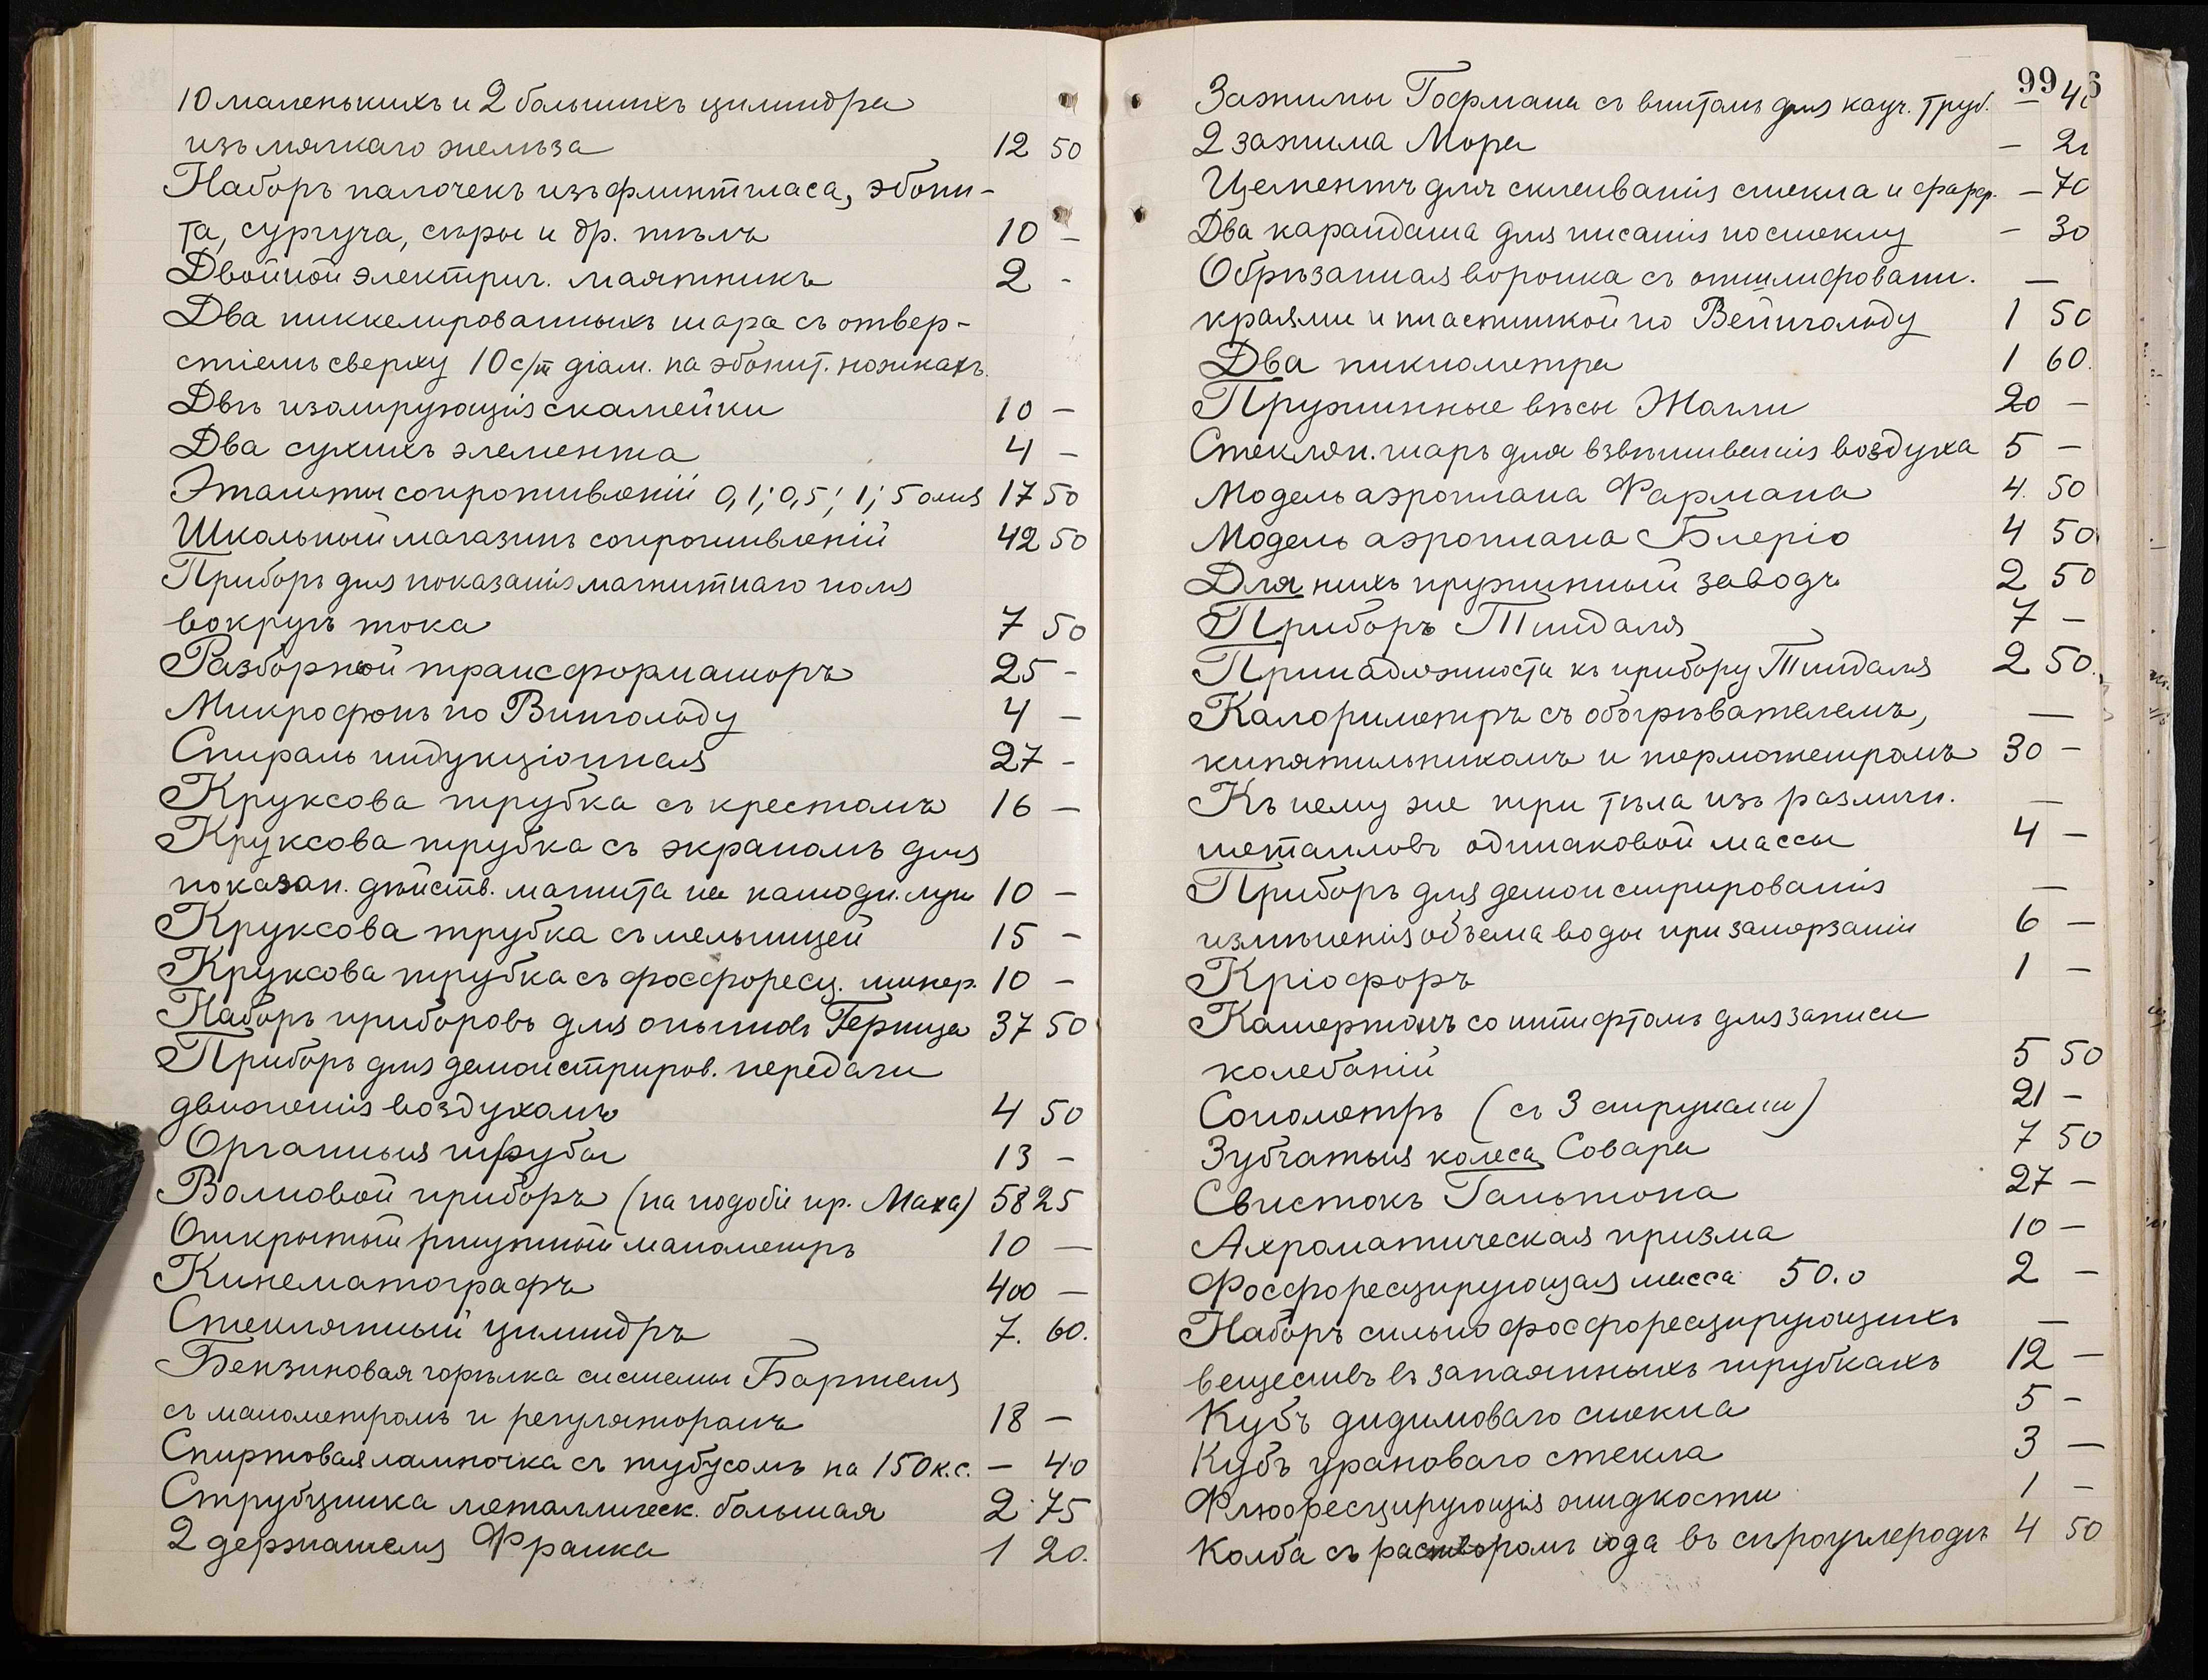 10 маленькихъ и 2 большихъ цилиндра
изъ мягкаго желѣза 12 50
Наборъ палочекъ изъ флинтгласа, эбони-
та, сургуча, сѣры и др. тѣлъ 10 -
Двойной электрич. маятникъ 2 -
Два никкелированныхъ шара съ отвер-
стіемъ сверху 10 с/m діам. на эбонит. ножкахъ.
Двѣ изолирующія скамейки 10 —
Два сухихъ элемента 4 —
Эталоны сопротивленій 0,1; 0,5; 1; 5 омъ 17 50
Школьный магазинъ сопротивленій 42 50
Приборъ для показанія магнитнаго поля
вокругъ тока 7 50
Разборной трансформаторъ 25 -
Микрофонъ по Вингольду 4 —
Спираль индукціонная 27 -
Круксова трубка съ крестомъ 16 —
Круксова трубка съ экраномъ для
показан. дѣйств. магнита на катодн. лучи 10 —
Круксова трубка съ мельницей 15 -
Круксова трубка съ фосфоресц. минер. 10 —
Наборъ приборовъ для опытовъ Герца 37 50
Приборъ для демонстриров. передачи
движенія воздухомъ 4 50
Органныя трубы 13 -
Волновой приборъ (на подобіе пр. Маха) 58 25
Открытый ртутный манометръ 10 —
Кинематографъ 400 —
Стеклянный цилиндръ 7. 60.
Бензиновая горѣлка системы Бартеля
съ манометромъ и регуляторомъ 18 —
Спиртовая лампочка съ тубусомъ на 150 к.с. — 40
Струбцинка металлическ. большая 2 75
2 держателя Франка 1 20.
99
Зажимы Гофмана съ винтомъ для кауч. труб. —
2 зажима Мора —
Цементъ для склеиванія стекла и фарф. — 70
Два карандаша для писанія по стеклу — 30
Обрѣзанная воронка съ отшлифованн. —
краями и пластинкой по Вейнгольду 1 50
Два пикнометра 1 60.
Пружинные вѣсы Жолли 20 —
Стеклян. шаръ для взвѣшиванія воздуха 5 —
Модель аэроплана Фармана 4. 50
Модель аэроплана Блеріо 4 50
Для нихъ пружинный заводъ 2 50
Приборъ Тиндаля 7 —
Принадлежности къ прибору Тиндаля 2 50.
Калориметръ съ обогрѣвателемъ, —
кипятильникомъ и термометромъ 30 —
Къ нему же три тѣла изъ различн. —
металловъ одинаковой массы 4 —
Приборъ для демонстрированія —
измѣненія объема воды при замерзаніи 6 —
Кріофоръ 1 —
Камертонъ со штифтомъ для записи
колебаній 5 50
Сонометръ (съ 3 струнами) 21 —
Зубчатыя колеса Совара 7 50
Свистокъ Гальтона 27 —
Ахроматическая призма 10 —
Фосфоресцирующая масса 50.0 2 —
Наборъ сильно фосфоресцирующихъ —
веществъ въ запаянныхъ трубкахъ 12 —
Кубъ дидимоваго стекла 5 -
Кубъ урановаго стекла 3 —
Флюоресцирующія жидкости 1 -
Колба съ растворомъ іода въ сѣроуглеродѣ 4 50